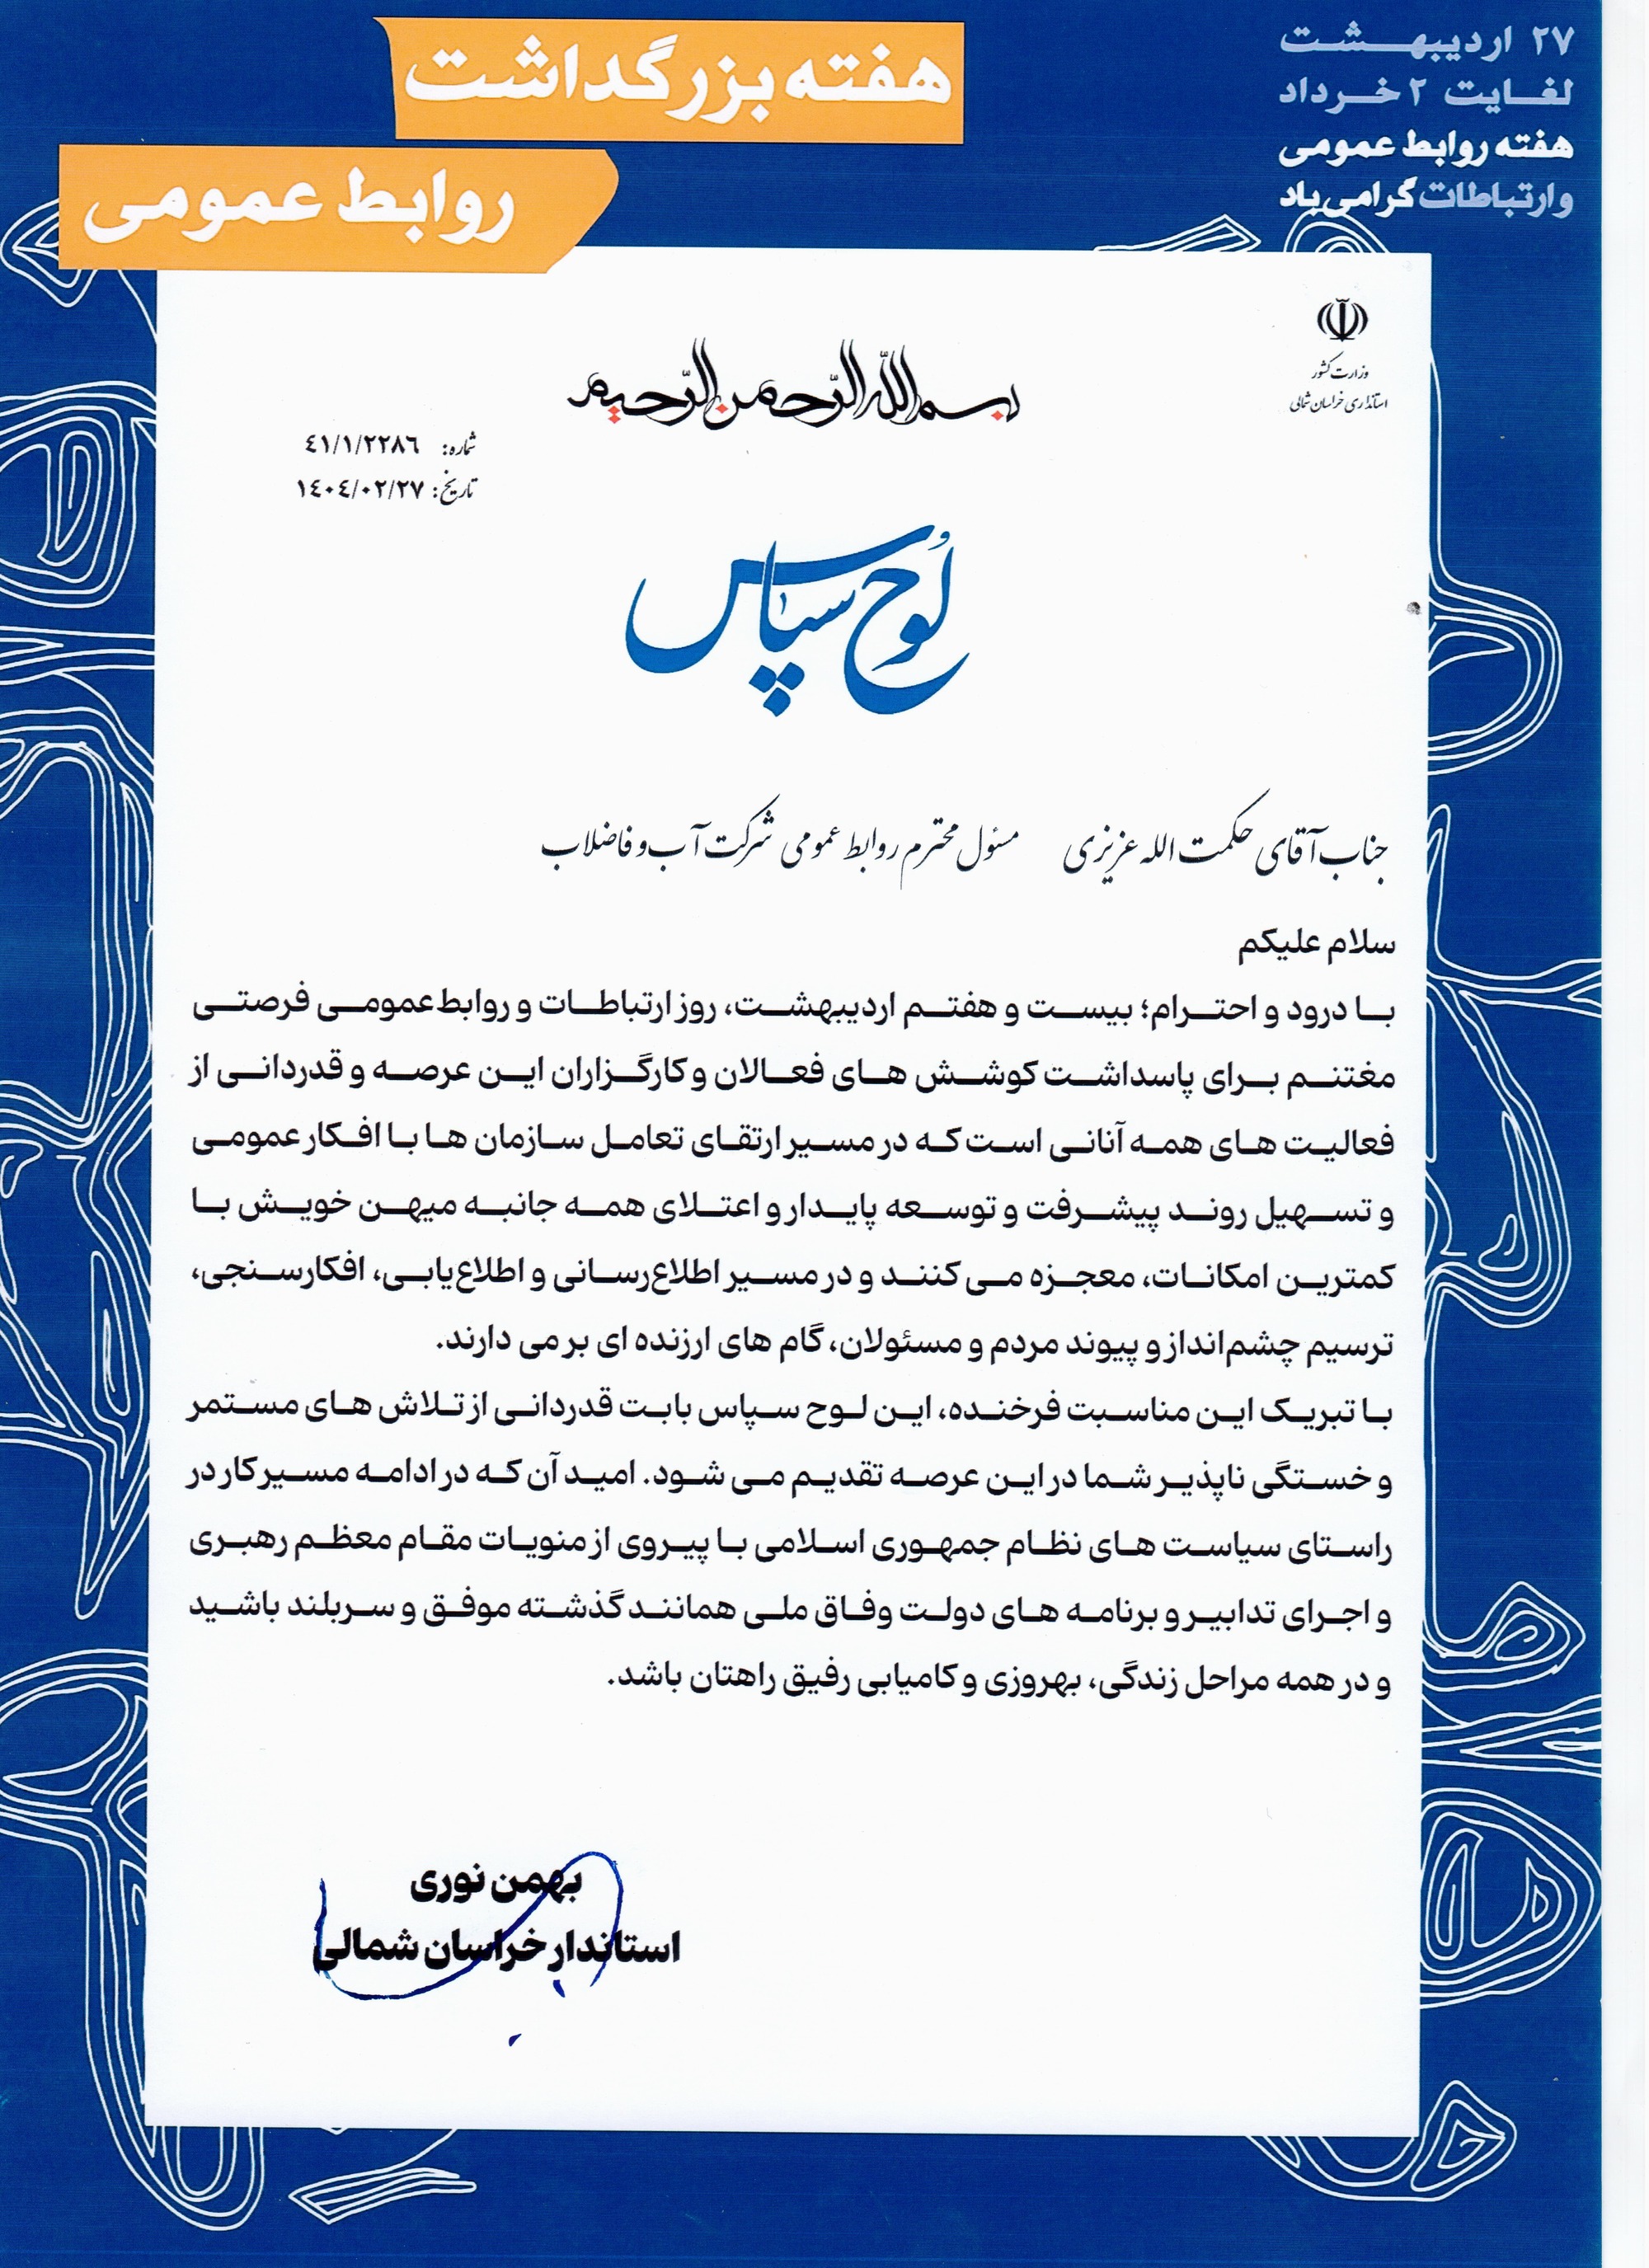 هفته بزرگداشت
روابط عمومی
۲۷ اردیبهشت
لغایت ۲ خرداد
هفته روابط عمومی
و ارتباطات گرامی‌باد
وزارت کشور
استانداری خراسان شمالی
بسم الله الرّحمن الرّحیم
شماره: ۴۱/۱/۲۲۸۶
تاریخ: ۱۴۰۴/۰۲/۲۷
لوح سپاس
جناب آقای حکمت الله عزیزی مسئول محترم روابط عمومی شرکت آب و فاضلاب
سلام علیکم
با درود و احترام؛ بیست و هفتم اردیبهشت، روز ارتباطات و روابط‌عمومی فرصتی
مغتنم برای پاسداشت کوشش های فعالان و کارگزاران این عرصه و قدردانی از
فعالیت های همه آنانی است که در مسیر ارتقای تعامل سازمان ها با افکار عمومی
و تسهیل روند پیشرفت و توسعه پایدار و اعتلای همه جانبه میهن خویش با
کمترین امکانات، معجزه می کنند و در مسیر اطلاع‌رسانی و اطلاع‌یابی، افکارسنجی،
ترسیم چشم‌انداز و پیوند مردم و مسئولان، گام های ارزنده ای بر می دارند.
با تبریک این مناسبت فرخنده، این لوح سپاس بابت قدردانی از تلاش های مستمر
و خستگی ناپذیر شما در این عرصه تقدیم می شود. امید آن که در ادامه مسیر کار در
راستای سیاست های نظام جمهوری اسلامی با پیروی از منویات مقام معظم رهبری
و اجرای تدابیر و برنامه های دولت وفاق ملی همانند گذشته موفق و سربلند باشید
و در همه مراحل زندگی، بهروزی و کامیابی رفیق راهتان باشد.
بهمن نوری
استاندار خراسان شمالی